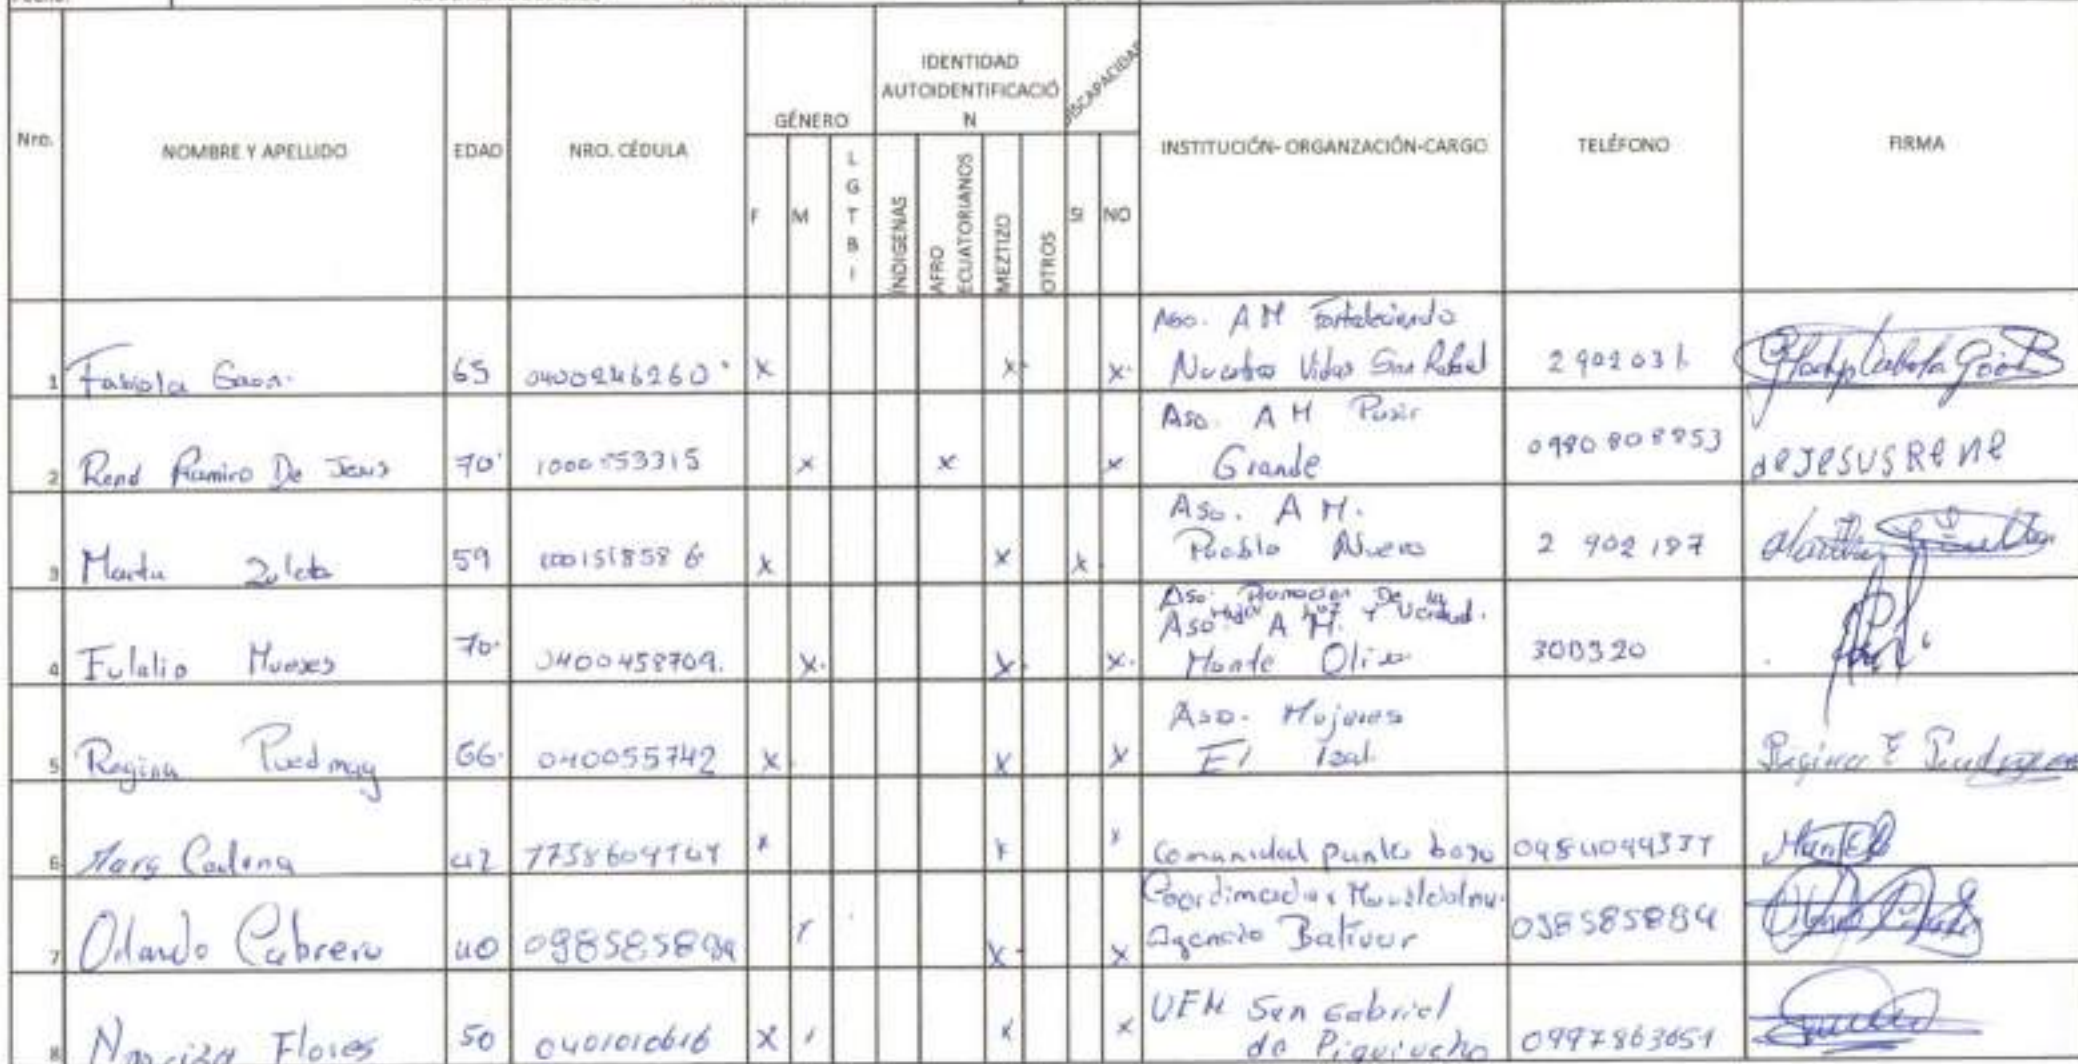 Nro.
NOMBRE Y APELLIDO
EDAD
NRO. CÉDULA
GÉNERO
F
M
LGTBI
IDENTIDAD
AUTOIDENTIFICACIÓ
N
INDIGENAS
AFRO
ECUATORIANOS
MEZTIZO
OTROS
DISCAPACIDAD
SI
NO
INSTITUCIÓN- ORGANZACIÓN-CARGO
TELÉFONO
FIRMA
1 Fabiola Gaon 65 0400246260 x x x Aso. A M Fortaleciendo
Nuestras Vidas San Rafael 2902031
2 Rend Ramiro De Jesus 70 1000553315 x x x Aso. A M Pusir
Grande 0980808853 de JESUS RENE
3 Marta Zuleta 59 1001518586 x x x Aso. A M.
Pueblo Nuevo 2 902 187
4 Eulalio Mueses 70 0400458709. x x x Aso. Promocion De la
Mujer Luz y Verdad.
Aso A M.
Monte Olivo 300320
5 Regina Puedmag 66 040055742 x x x Aso. Mujeres
El Izal Regina E
6 Cadena 42 x x x Comunidad punto bajo
7 Orlando Cabrera 40 098585894 x x Agencia Bolivar 0985858894
8 Narciza Flores 50 0401010616 x x x UEM San Gabriel
de Piquiucho 0997863651